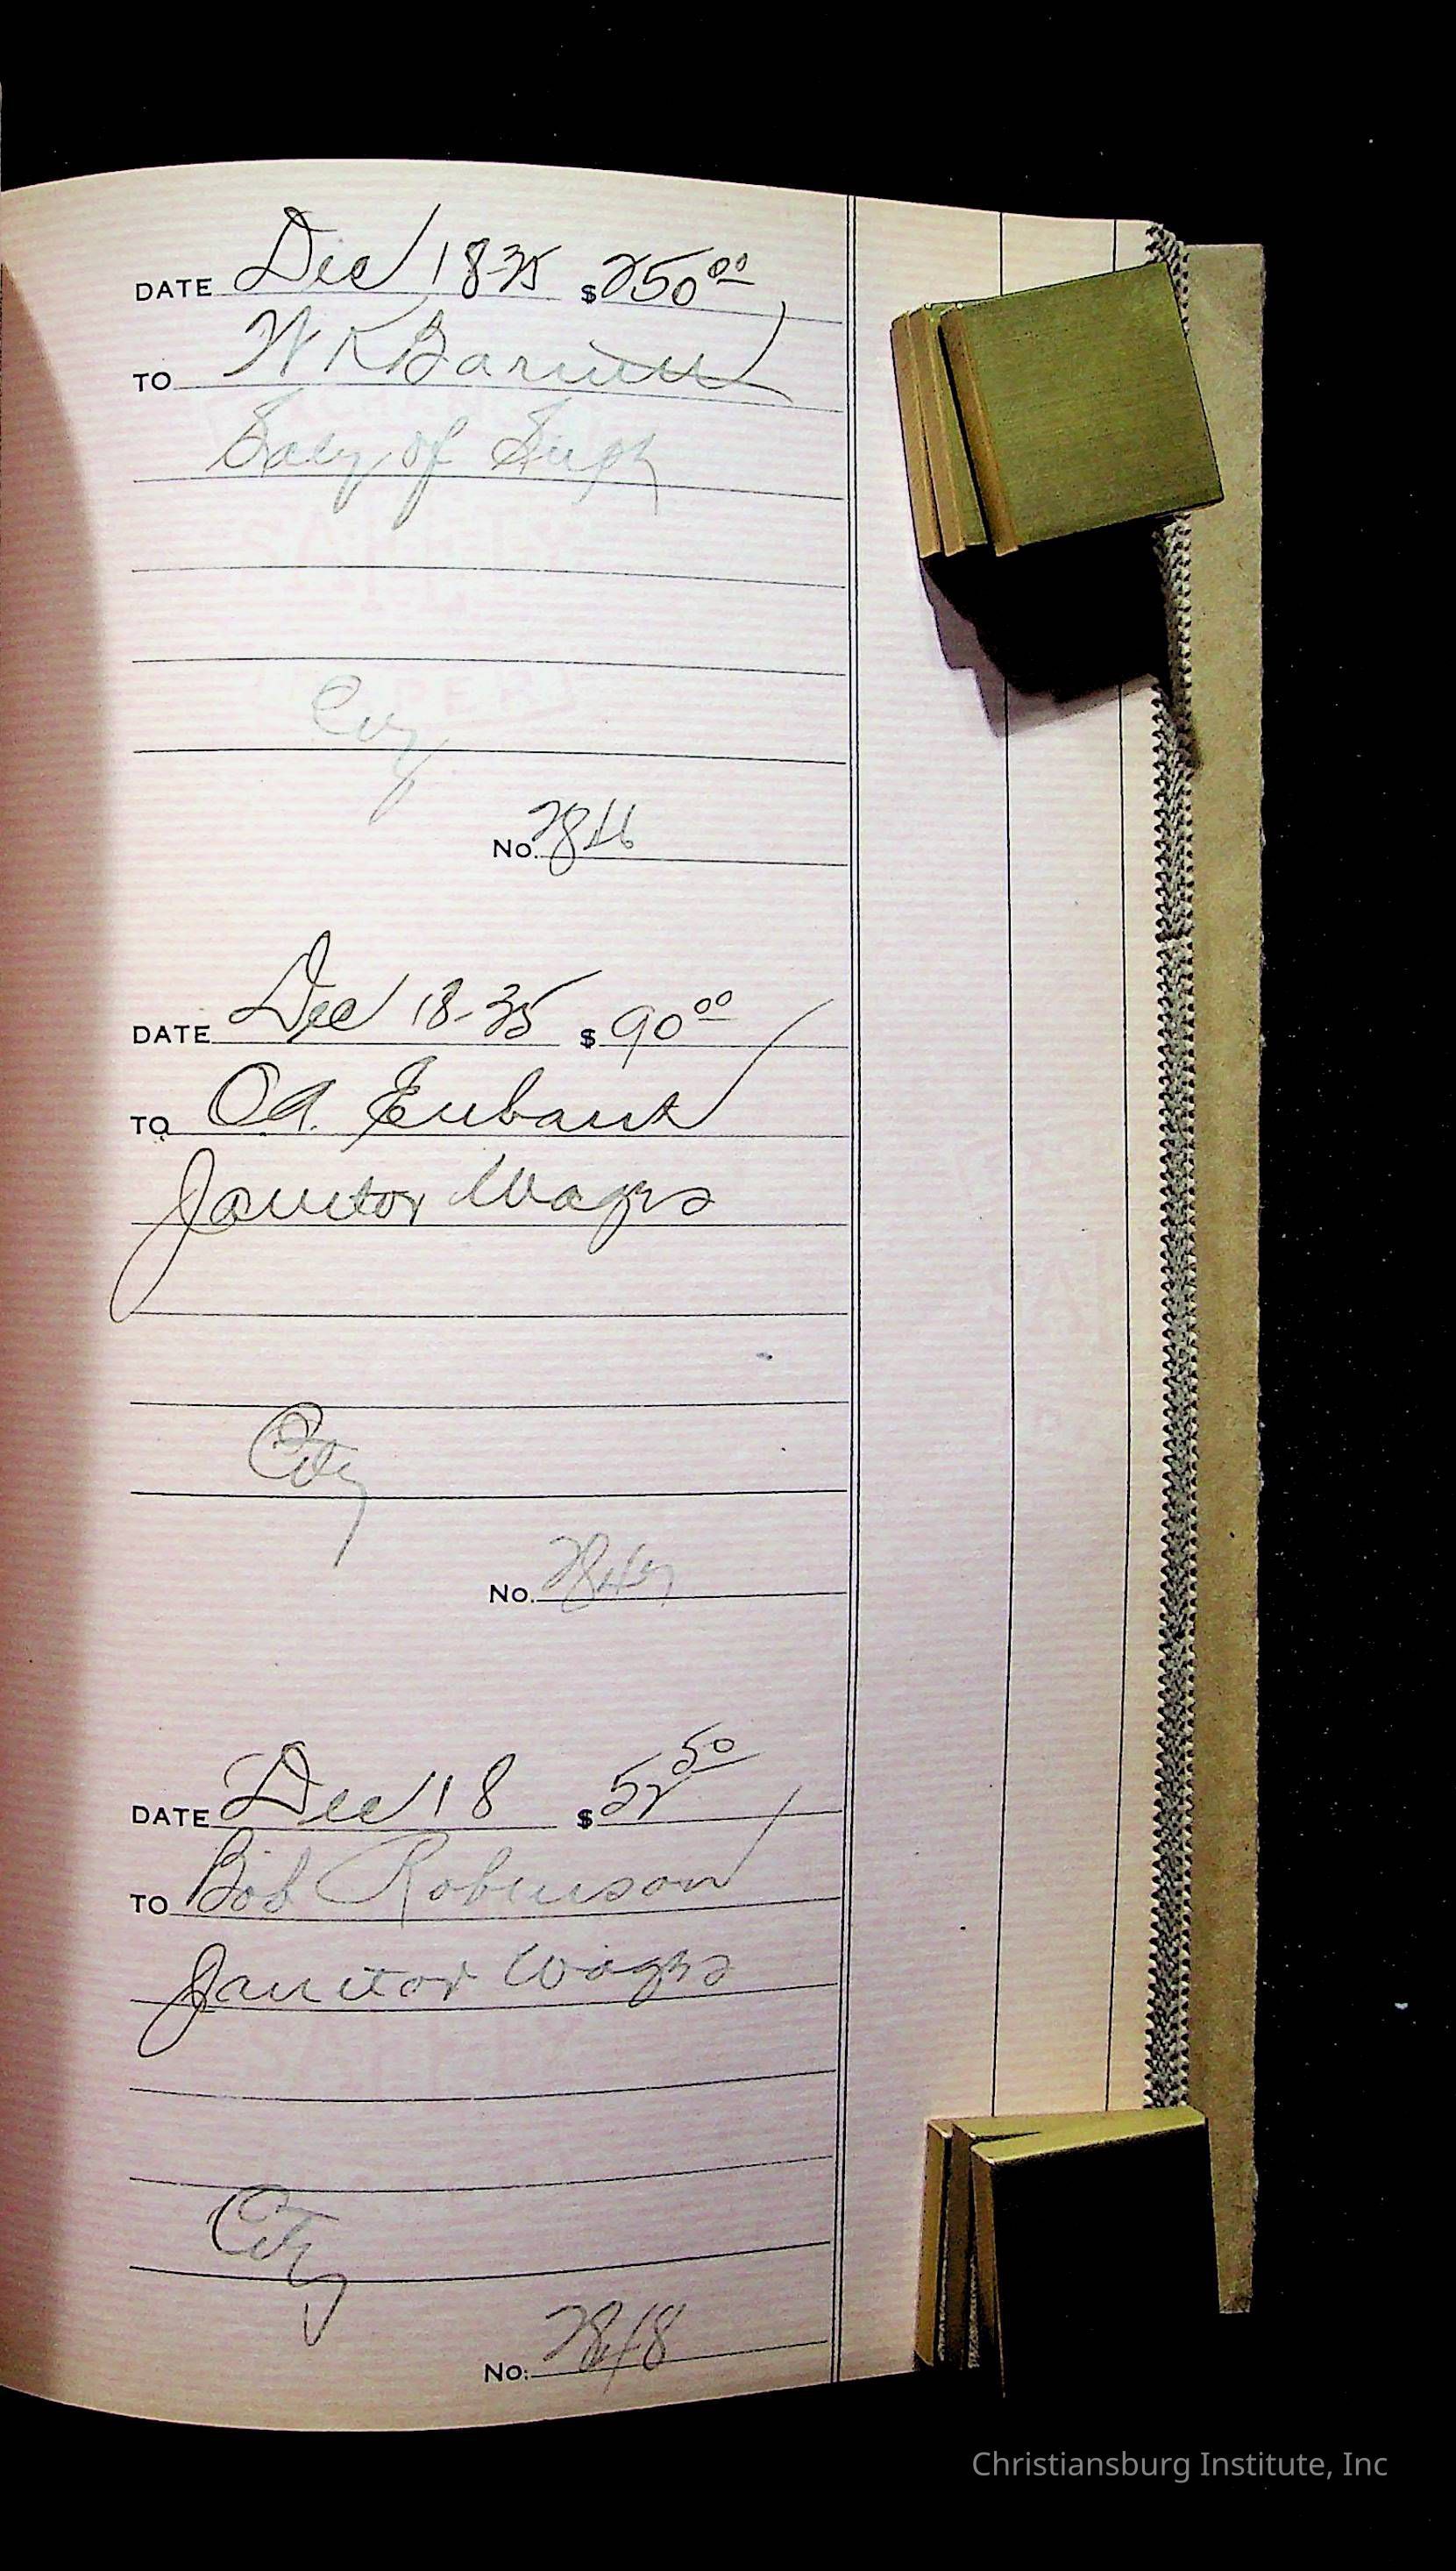 DATE Dec 18-35 $250 00
TO W K Barnett
Saly of Supt
City
No. 2846
DATE Dec 18-35 $90 00
TO O A. Eubank
Janitor Wages
City
No. 2847
DATE Dec 18 $52 50
TO Bob Robinson
Janitor Wages
City
No. 2848
Christiansburg Institute, Inc